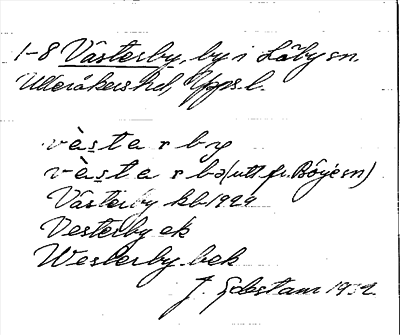 1-8 Västerby, by i Läby sn.
Ulleråkers hd, Upps. l.
vàs̨tarby
vàs̨tarbə (utt fr. Börje sn)
Västerby kb 1929
Vesterby ek
Westerby bek
J. 1932